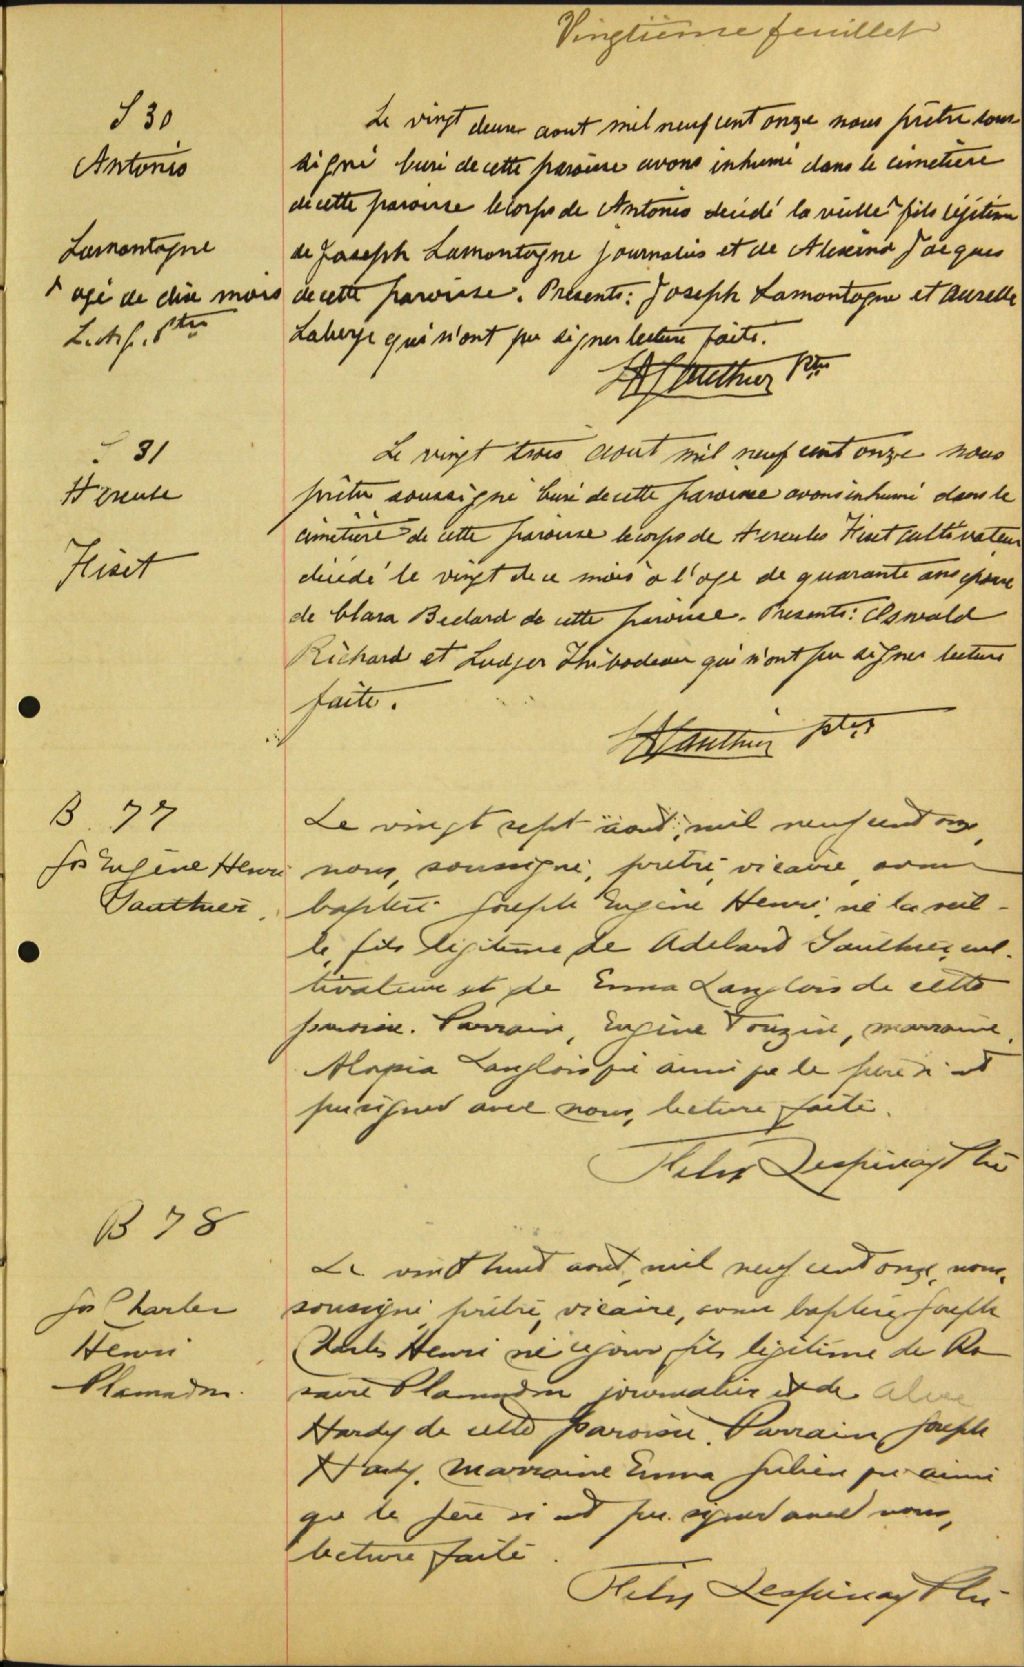 Vingtième feuillet
S 30
Antonio
Lamontagne
^ agé de dix mois
L.A.G. Ptre
Le vingt deux aout mil neuf cent onze nous prêtre sous
signé curé de cette paroisse avons inhumé dans le cimetière
de cette paroisse le corps de Antonio decédé la veille ^ fils légitime
de Joseph Lamontagne journalier et de Alexina Jacques
de cette paroisse. Presents: Joseph Lamontagne et Aurelle
Laberge qui n'ont pu signer lecture faite.
LAGauthier Ptre
S 31
Hercule
Fiset
Le vingt trois aout mil neuf cent onze nous
prêtre soussigné curé de cette paroisse avons inhumé dans le
cimetière de cette paroisse le corps de Hercules Fiset cultivateur
décédé le vingt de ce mois a l'age de quarante ans époux
de Clara Bedard de cette paroisse. Presents: Oswald
Richard et Ludger Thibodeau qui n'ont pu signer lecture
faite.
LAGauthier ptre
B. 77
Jos Eugène Henri
Gauthier.
Le vingt sept aout, mil neuf cent onze,
nous, soussigné, prêtre, vicaire, avons
baptisé Joseph Eugène Henri, né la veil-
le, fils légitime de Adelard Gauthier, cul-
tivateur et de Emma Langlois de cette
paroisse. Parrain, Eugène Touzin, marraine,
Langlois qui ainsi que le père n'ont
pu signer avec nous, lecture faite.
Felix Lespinay Ptre
B 78
Jos Charles
Henri
Plamondon.
Le vingt huit aout, mil neuf cent onze, nous,
soussigné, prêtre, vicaire, avons baptisé Joseph
Charles Henri né ce jour fils légitime de Ro
saire Plamondon journalier et de Alice
Hardy de cette paroisse. Parrain, Joseph
Hardy, marraine Emma Julien qui ainsi
que le père n'ont pu signer avec nous,
lecture faite.
Felix Lespinay Ptre